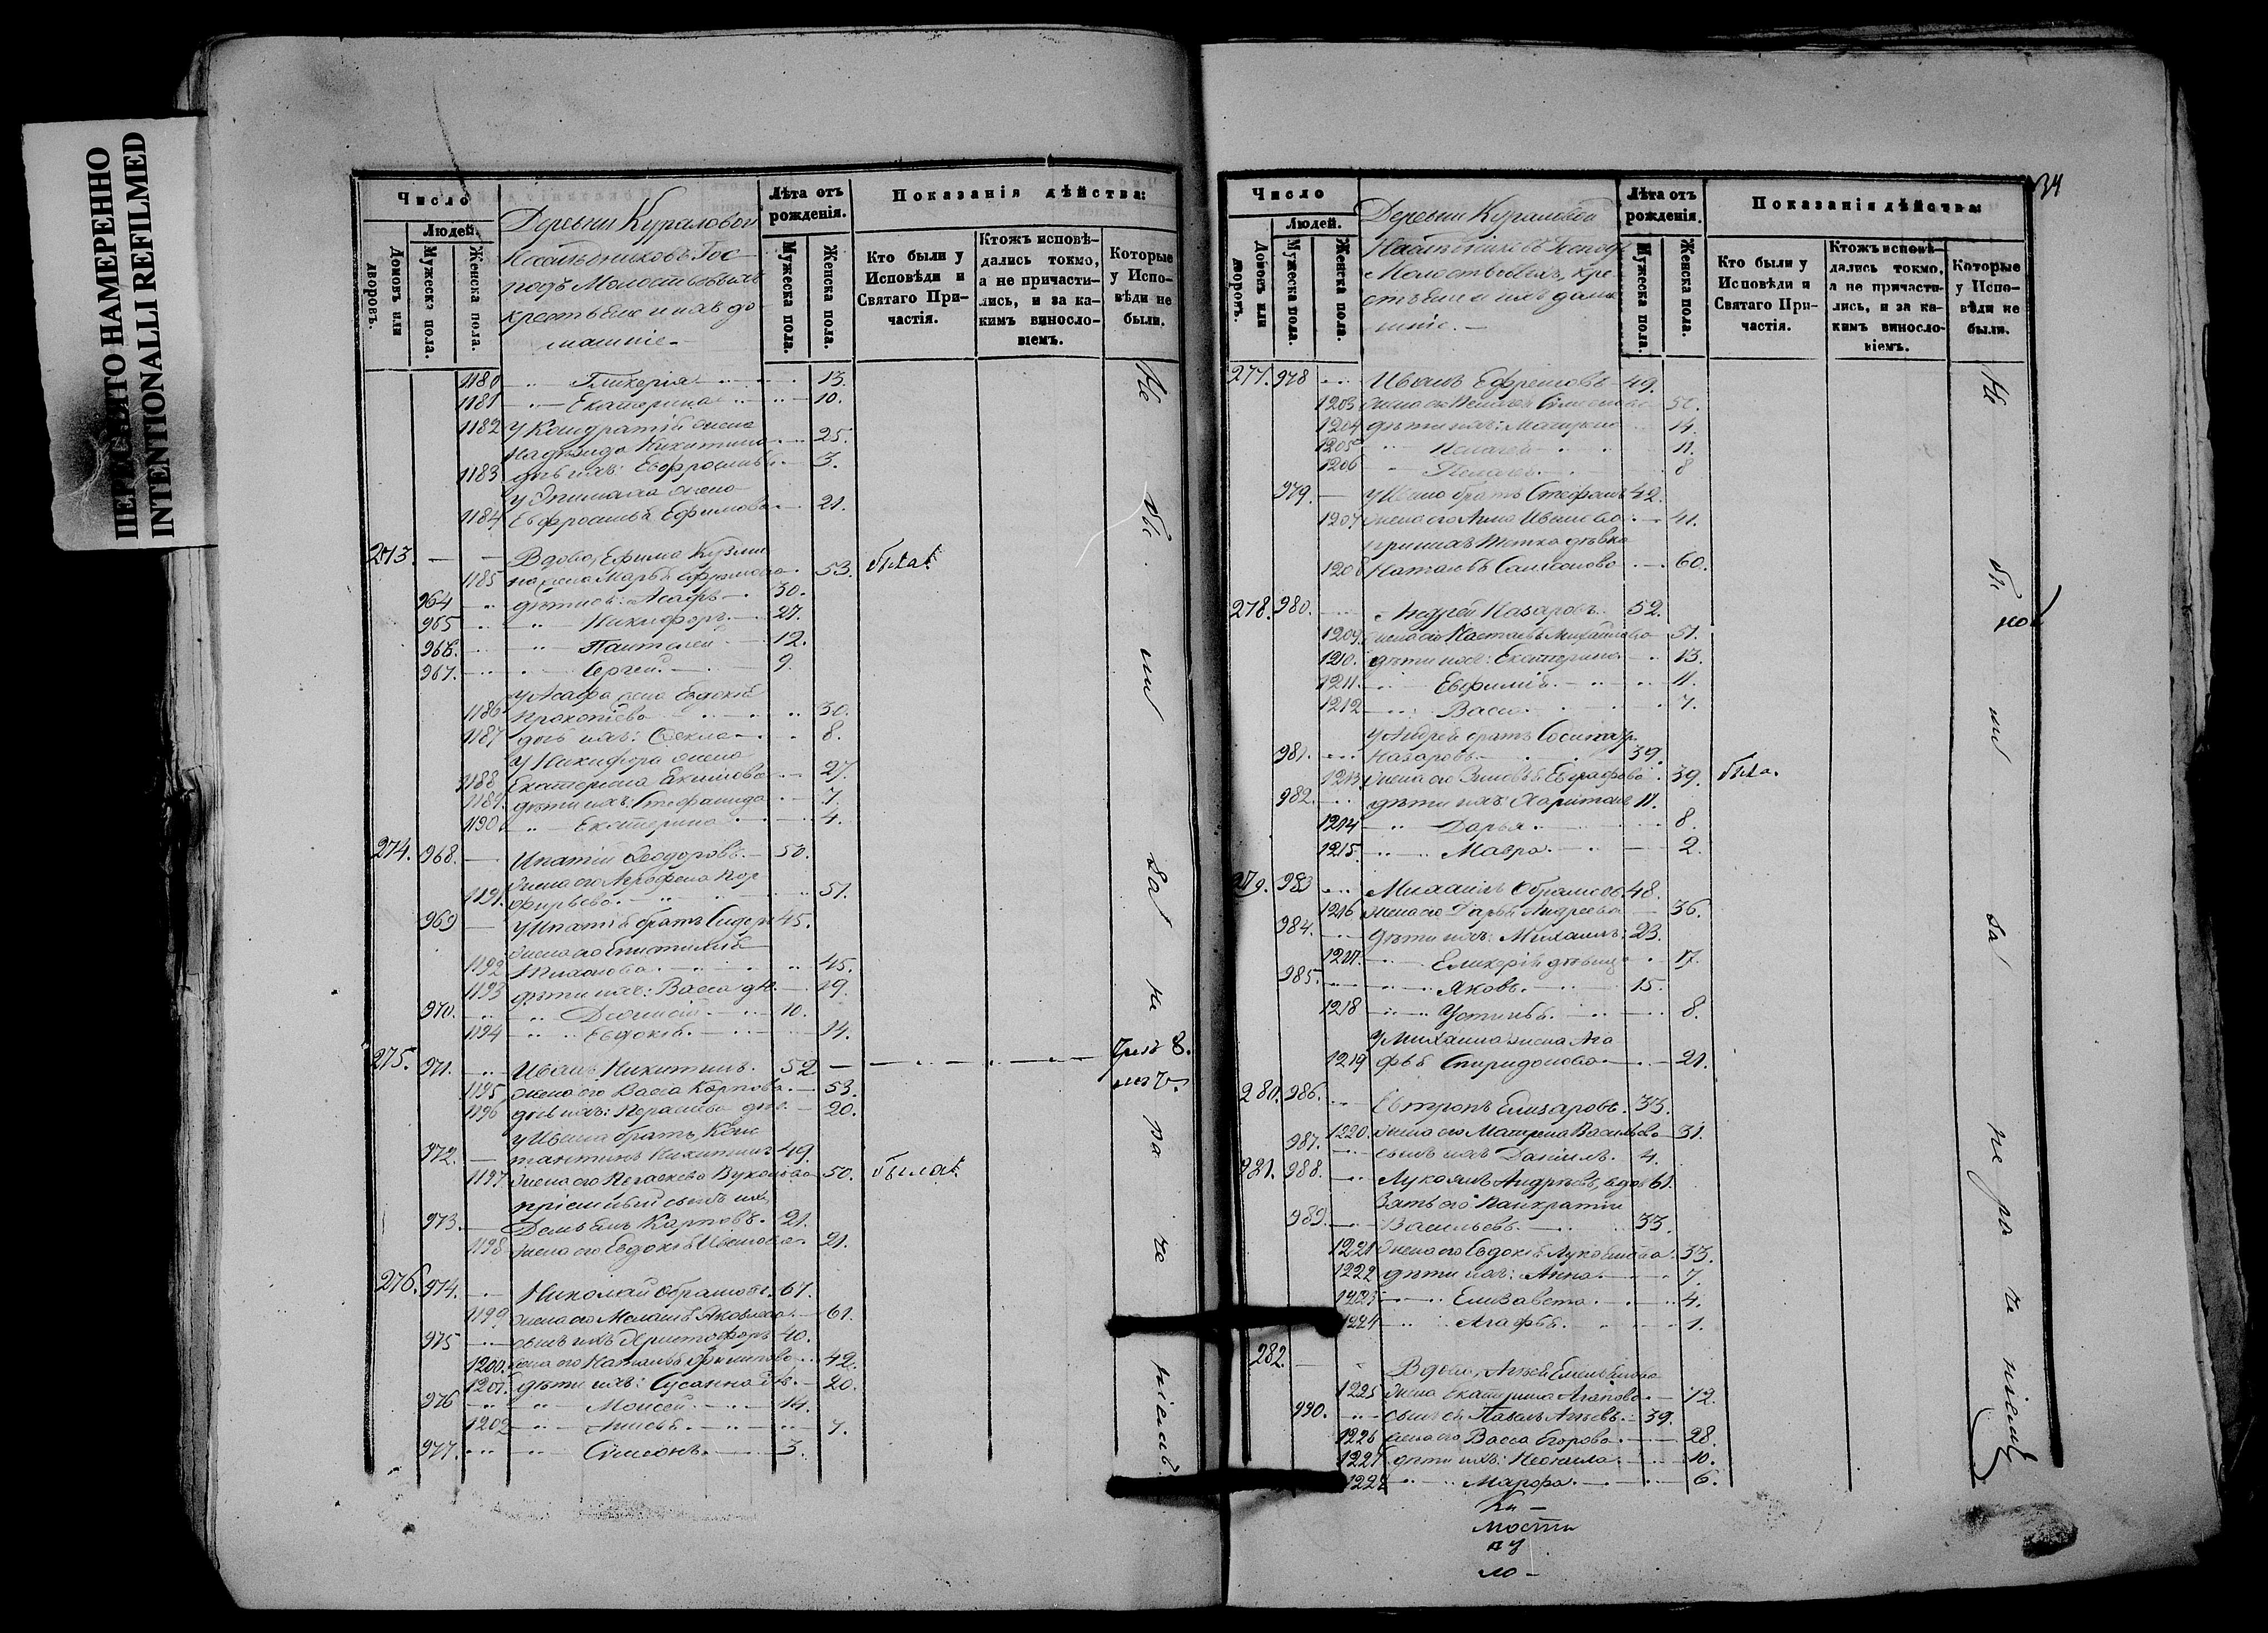 ПЕРЕСНЯТО НАМЕРЕННО
INTENTIONALLI REFILMED
34
Число
Людей.
Домовъ или дворовъ.
Мужеска пола.
Женска пола.
Деревни Кураловой
Господъ Молоствовыхъ
крестьяне и ихъ до-
машніе.
Лѣта отъ рожденія.
Мужеска пола.
Женска пола.
Показанія дѣйства:
Кто были у Исповѣди и Святаго При-частія.
Ктожъ исповѣ-дались токмо, а не причасти-лись, и за ка-кимъ винослo-віемъ.
Которые у Испо-вѣди не были.
1180 Гликерія 13.
1181 Екатерина 10.
1182 у Кондратія жена
Надежда Никитина 25.
1183 дочь ихъ: Евфросинья 3.
жена
1184 Евфросинья Ефимова 21.
273. Вдова, Ефима Кузми
1185 на жена Марья 53. была
964 дѣти ея: Асафъ 30.
965 Никифоръ 27.
966. Пантелей 12.
967. Сергей 9.
у Асафа жена Евдокія
1186 Прокопіева 30.
1187 дочь ихъ: Фекла 8.
у Никифора жена
1188 Екатерина Екимова 27.
1189. дѣти ихъ: Стефанида 7.
1190 Екатерина 4.
274. 968. Ипатій Ѳеодоровъ 50.
1191. жена его Пор
фирьева 51.
969 у Ипатія братъ Сидоръ 45.
1192 жена его
Тихонова 45.
1193 дѣти ихъ: Васса дѣ. 19.
970. Діонисій 10.
1194 Евдокія 14.
275. 971. Иванъ Никитинъ 52
1195 жена его Васса Карпова 53.
1196 дочь ихъ: Парасковья дѣв. 20.
у Ивана братъ, Конс
972. тантинъ Никитинъ 49.
1197 жена его 50. была
пріемный сынъ ихъ
973. Демьянъ Карповъ. 21.
1198 жена его Евдокія Иванова 21.
276. 974. Николай Абрамовъ. 67.
1199 жена его Меланья Яковлева 61.
975 сынъ ихъ Христофоръ 40.
1200. жена его Наталья Филипова 42.
1201. дѣти ихъ: Сусанна дѣ. 20.
976 Моисей 14.
1202 Анисья 7.
977. Симеонъ 3.
Не бы ли за не ра че ніемъ
Число
Людей.
Домовъ или дворовъ.
Мужеска пола.
Женска пола.
Деревни Кураловой
Господъ
Молоствовыхъ, кре
стьяне и ихъ дома
шніе.
Лѣта отъ рожденія.
Мужеска пола.
Женска пола.
Показанія дѣйства:
Кто были у Исповѣди и Святаго При-частія.
Ктожъ исповѣ-дались токмо, а не причасти-лись, и за ка-кимъ винослo-віемъ.
Которые у Испо-вѣди не были.
277. 978 Иванъ Ефремовъ 49.
1203 жена его
1204 дѣти ихъ: 14.
1205 Пелагея 11.
1206 8
979. у Ивана братъ Стефанъ 42.
1207 жена его Анна Иванова 41.
при нихъ тетка дѣвка
1208 Наталья 60.
278. 980. Андрей Назаровъ 52.
1209. жена его Михайлова 51.
1210. дѣти ихъ: Екатерина 13.
1211. Евфимія 11.
1212 Васса 7.
у Андрея братъ
981. Назаровъ 39.
1213. жена его Зиновья Евграфова 39. была
982. дѣти ихъ: Харитонъ 11.
1214 Дарья 8.
1215. Мавра 2.
279. 983 Михаилъ Абрамовъ 48.
1216 жена его Дарья Андреева 36.
984. дѣти ихъ: Михаилъ 23.
1217. Гликерія дѣвица 17.
985. Яковъ 15.
1218 Устинья 8.
у Михаила жена Ага
1219 фья Спиридонова 21.
280. 986. Евтропъ Елизаровъ 33.
1220. жена его Матрена Васильева 31.
987. сынъ ихъ Даніилъ 4.
281. 988. Лукоянъ Андреевъ, вдов 61.
Зять его Панкратій
989. Васильевъ 33.
1221 жена его Евдокія Лукоянова 33.
1222 дѣти ихъ: Анна 7.
1223 Елизавета 4.
1224 Агафья 1.
282. Вдова,
1225 жена Екатерина Агапова 72.
990. сынъ ея Павелъ 39.
1226 жена его Васса Егорова 28.
1227 дѣти ихъ: Неонила 10.
1228 Марфа 6.
Не бы ли за не ра че ніемъ